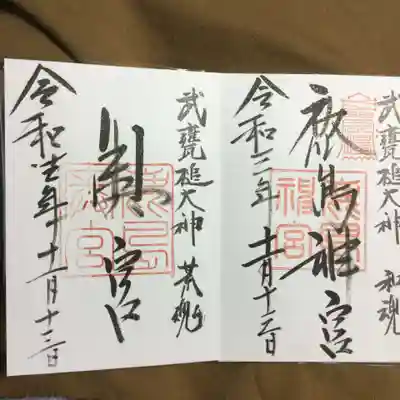 武甕槌大神 和魂
鹿島神宮
令和三年十一月十三日
武甕槌大神 荒魂
奥宮
令和三年十一月十三日
鹿島神宮